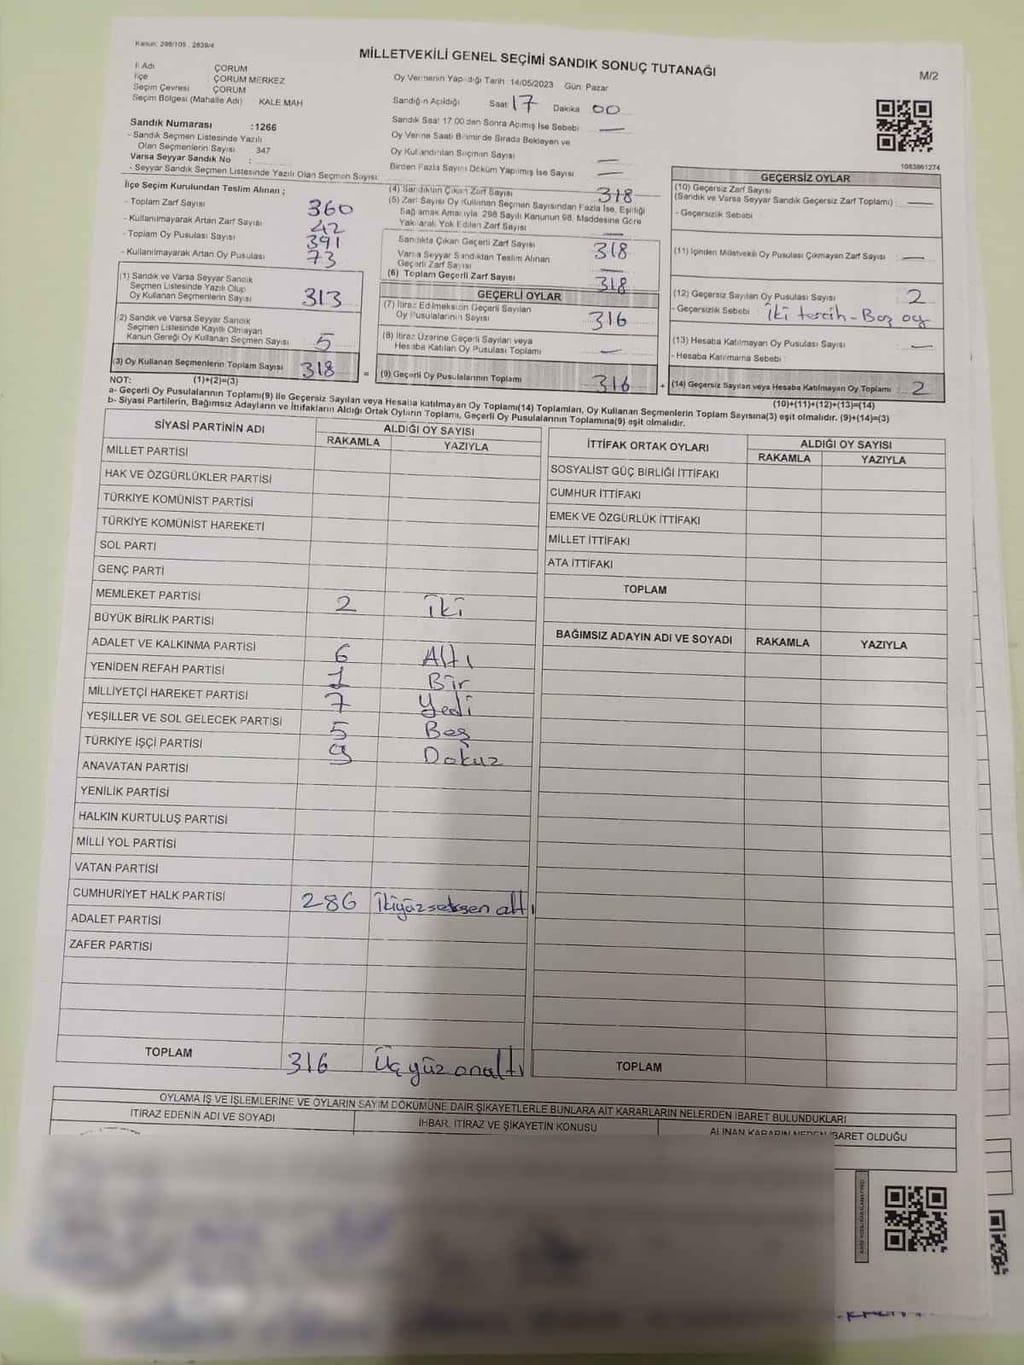 Kanun: 298/105 , 2839/4
MİLLETVEKİLİ GENEL SEÇİMİ SANDIK SONUÇ TUTANAĞI
M/2
İl Adı ÇORUM
İlçe ÇORUM MERKEZ
Seçim Çevresi ÇORUM
Seçim Bölgesi (Mahalle Adı) KALE MAH
Sandık Numarası :1266
- Sandık Seçmen Listesinde Yazılı
Olan Seçmenlerin Sayısı 347
Varsa Seyyar Sandık No :
- Seyyar Sandık Seçmen Listesinde Yazılı Olan Seçmen Sayısı:
Oy Vermenin Yapıldığı Tarih :14/05/2023 Gün: Pazar
Sandığın Açıldığı Saat 17 Dakika 00
Sandık Saat 17:00'den Sonra Açılmış İse Sebebi —
Oy Verme Saati Bitiminde Sırada Bekleyen ve
Oy Kullandırılan Seçmen Sayısı —
Birden Fazla Sayım Döküm Yapılmış İse Sayısı —
1083861274
İlçe Seçim Kurulundan Teslim Alınan ;
- Toplam Zarf Sayısı 360
- Kullanılmayarak Artan Zarf Sayısı 42
- Toplam Oy Pusulası Sayısı 391
- Kullanılmayarak Artan Oy Pusulası 73
(1) Sandık ve Varsa Seyyar Sandık
Seçmen Listesinde Yazılı Olup
Oy Kullanan Seçmenlerin Sayısı 313
(2) Sandık ve Varsa Seyyar Sandık
Seçmen Listesinde Kayıtlı Olmayan
Kanun Gereği Oy Kullanan Seçmen Sayısı 5
(3) Oy Kullanan Seçmenlerin Toplam Sayısı 318 =
(4) Sandıktan Çıkan Zarf Sayısı 318
(5) Zarf Sayısı Oy Kullanan Seçmen Sayısından Fazla İse, Eşitliği
Sağlamak Amacıyla 298 Sayılı Kanunun 98. Maddesine Göre
Yakılarak Yok Edilen Zarf Sayısı —
Sandıkta Çıkan Geçerli Zarf Sayısı 318
Varsa Seyyar Sandıktan Teslim Alınan
Geçerli Zarf Sayısı —
(6) Toplam Geçerli Zarf Sayısı 318
GEÇERLİ OYLAR
(7) İtiraz Edilmeksizin Geçerli Sayılan
Oy Pusulalarının Sayısı 316
(8) İtiraz Üzerine Geçerli Sayılan veya
Hesaba Katılan Oy Pusulası Toplamı —
(9) Geçerli Oy Pusulalarının Toplamı 316 +
GEÇERSİZ OYLAR
(10) Geçersiz Zarf Sayısı
(Sandık ve Varsa Seyyar Sandık Geçersiz Zarf Toplamı) : —
- Geçersizlik Sebebi
(11) İçinden Milletvekili Oy Pusulası Çıkmayan Zarf Sayısı —
(12) Geçersiz Sayılan Oy Pusulası Sayısı 2
- Geçersizlik Sebebi İki tercih - Boş oy
(13) Hesaba Katılmayan Oy Pusulası Sayısı —
- Hesaba Katılmama Sebebi :
(14) Geçersiz Sayılan veya Hesaba Katılmayan Oy Toplamı 2
NOT: (1)+(2)=(3)
(10)+(11)+(12)+(13)=(14)
a- Geçerli Oy Pusulalarının Toplamı(9) ile Geçersiz Sayılan veya Hesaba katılmayan Oy Toplamı(14) Toplamları, Oy Kullanan Seçmenlerin Toplam Sayısına(3) eşit olmalıdır. (9)+(14)=(3)
b- Siyasi Partilerin, Bağımsız Adayların ve İttifakların Aldığı Ortak Oyların Toplamı, Geçerli Oy Pusulalarının Toplamına(9) eşit olmalıdır.
SİYASİ PARTİNİN ADI ALDIĞI OY SAYISI
RAKAMLA YAZIYLA
MİLLET PARTİSİ
HAK VE ÖZGÜRLÜKLER PARTİSİ
TÜRKİYE KOMÜNİST PARTİSİ
TÜRKİYE KOMÜNİST HAREKETİ
SOL PARTİ
GENÇ PARTİ
MEMLEKET PARTİSİ 2 İki
BÜYÜK BİRLİK PARTİSİ
ADALET VE KALKINMA PARTİSİ 6 Altı
YENİDEN REFAH PARTİSİ 1 Bir
MİLLİYETÇİ HAREKET PARTİSİ 7 Yedi
YEŞİLLER VE SOL GELECEK PARTİSİ 5 Beş
TÜRKİYE İŞÇİ PARTİSİ 9 Dokuz
ANAVATAN PARTİSİ
YENİLİK PARTİSİ
HALKIN KURTULUŞ PARTİSİ
MİLLİ YOL PARTİSİ
VATAN PARTİSİ
CUMHURİYET HALK PARTİSİ 286 İkiyüzseksen altı
ADALET PARTİSİ
ZAFER PARTİSİ
TOPLAM 316 Üç yüz onaltı
İTTİFAK ORTAK OYLARI ALDIĞI OY SAYISI
RAKAMLA YAZIYLA
SOSYALİST GÜÇ BİRLİĞİ İTTİFAKI
CUMHUR İTTİFAKI
EMEK VE ÖZGÜRLÜK İTTİFAKI
MİLLET İTTİFAKI
ATA İTTİFAKI
TOPLAM
BAĞIMSIZ ADAYIN ADI VE SOYADI RAKAMLA YAZIYLA
TOPLAM
OYLAMA İŞ VE İŞLEMLERİNE VE OYLARIN SAYIM DÖKÜMÜNE DAİR ŞİKAYETLERLE BUNLARA AİT KARARLARIN NELERDEN İBARET BULUNDUKLARI
İTİRAZ EDENİN ADI VE SOYADI İHBAR, İTİRAZ VE ŞİKAYETİN KONUSU ALINAN KARARIN NEDEN İBARET OLDUĞU